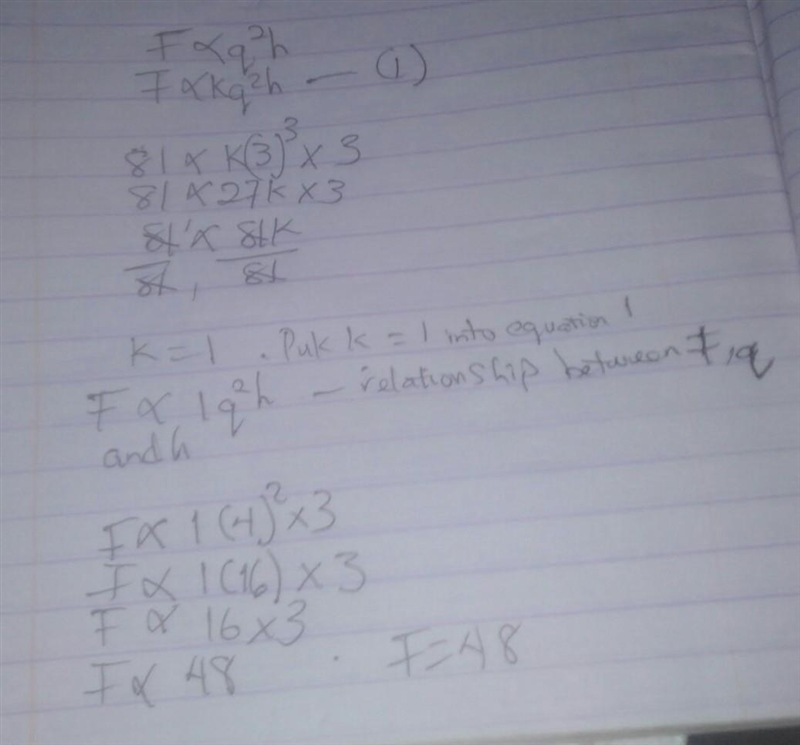 F ∝ q²h
F ∝ kq²h — (1)
81 ∝ k(3)³ × 3
81 ∝ 27k × 3
81 ∝ 81k
81, 81
k = 1 . Puk k = 1 into equation 1
F ∝ 1q²h – relationship between F, q
and h
F ∝ 1(4)² × 3
F ∝ 1(16) × 3
F ∝ 16 × 3
F ∝ 48 . F = 48